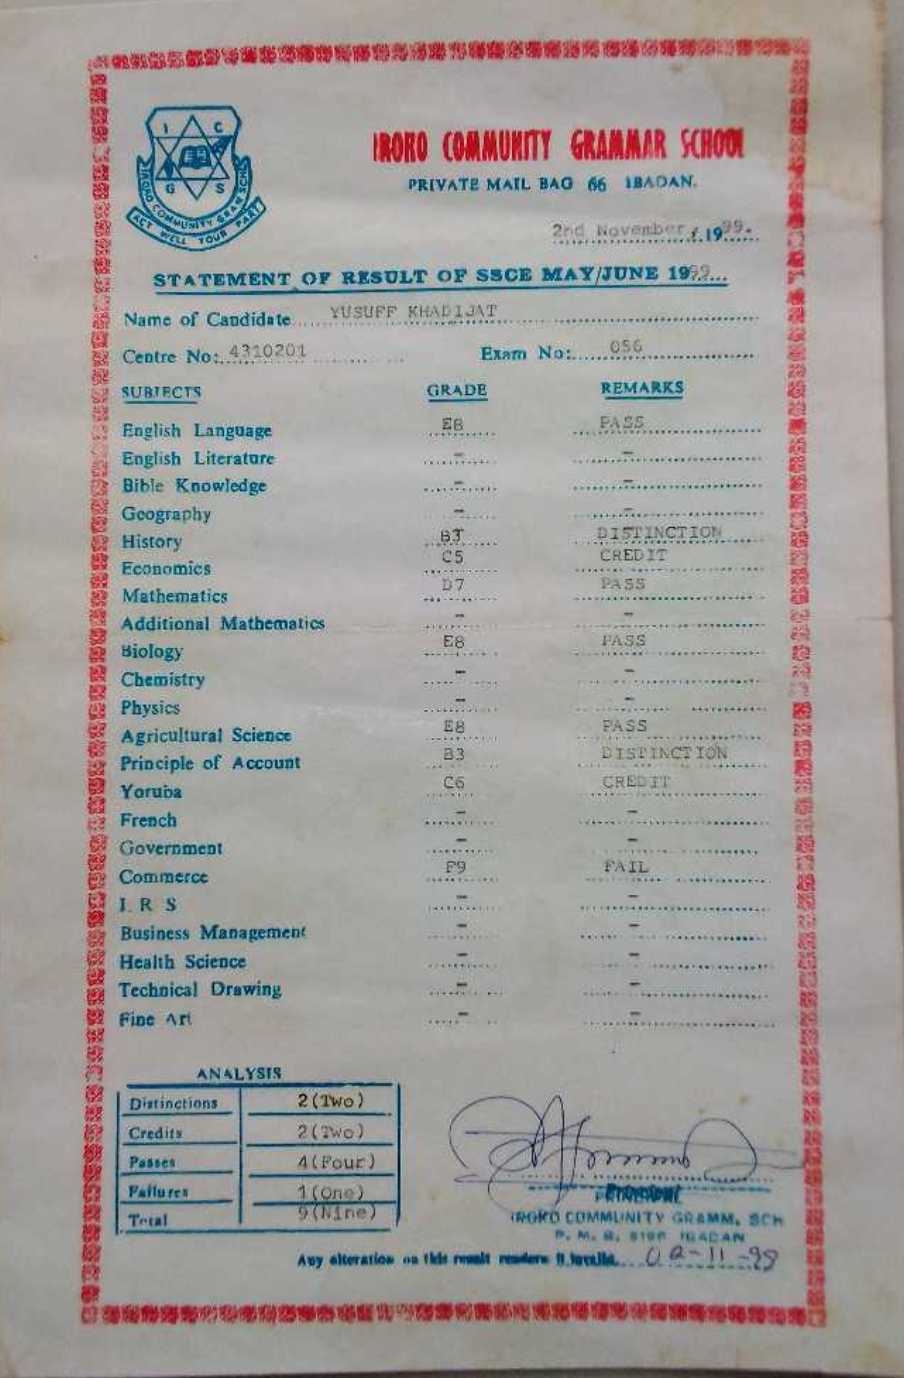 I C
G S
IROKO COMMUNITY GRAM SCHOOL
ACT WELL YOUR PART
IROKO COMMUNITY GRAMMAR SCHOOL
PRIVATE MAIL BAG 66 IBADAN.
2nd November, 1999.
STATEMENT OF RESULT OF SSCE MAY/JUNE 1999...
Name of Candidate YUSUFF KHADIJAT
Centre No: 4310201 Exam No: 056
SUBJECTS GRADE REMARKS
English Language E8 PASS
English Literature - -
Bible Knowledge - -
Geography - -
History B3 DISTINCTION
Economics C5 CREDIT
Mathematics D7 PASS
Additional Mathematics - -
Biology E8 PASS
Chemistry - -
Physics - -
Agricultural Science E8 PASS
Principle of Account B3 DISTINCTION
Yoruba C6 CREDIT
French - -
Government - -
Commerce F9 FAIL
I. R S - -
Business Management - -
Health Science - -
Technical Drawing - -
Fine Art - -
ANALYSIS
Distinctions 2(Two)
Credits 2(Two)
Passes 4(Four)
Failures 1(One)
Total 9(Nine)
PRINCIPAL
IROKO COMMUNITY GRAMM. SCH
P. M. B. IBADAN
Any alteration on this result renders it invalid. 02-11-99